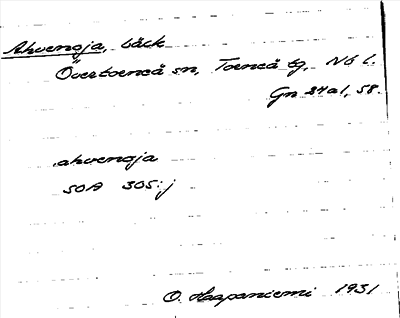 Ahvenoja, bäck
Övertorneå sn, Torneå tg, Nb l.
Gn 24a1, 58.
ahvenoja
50A 305:j
O. Haapaniemi 1931